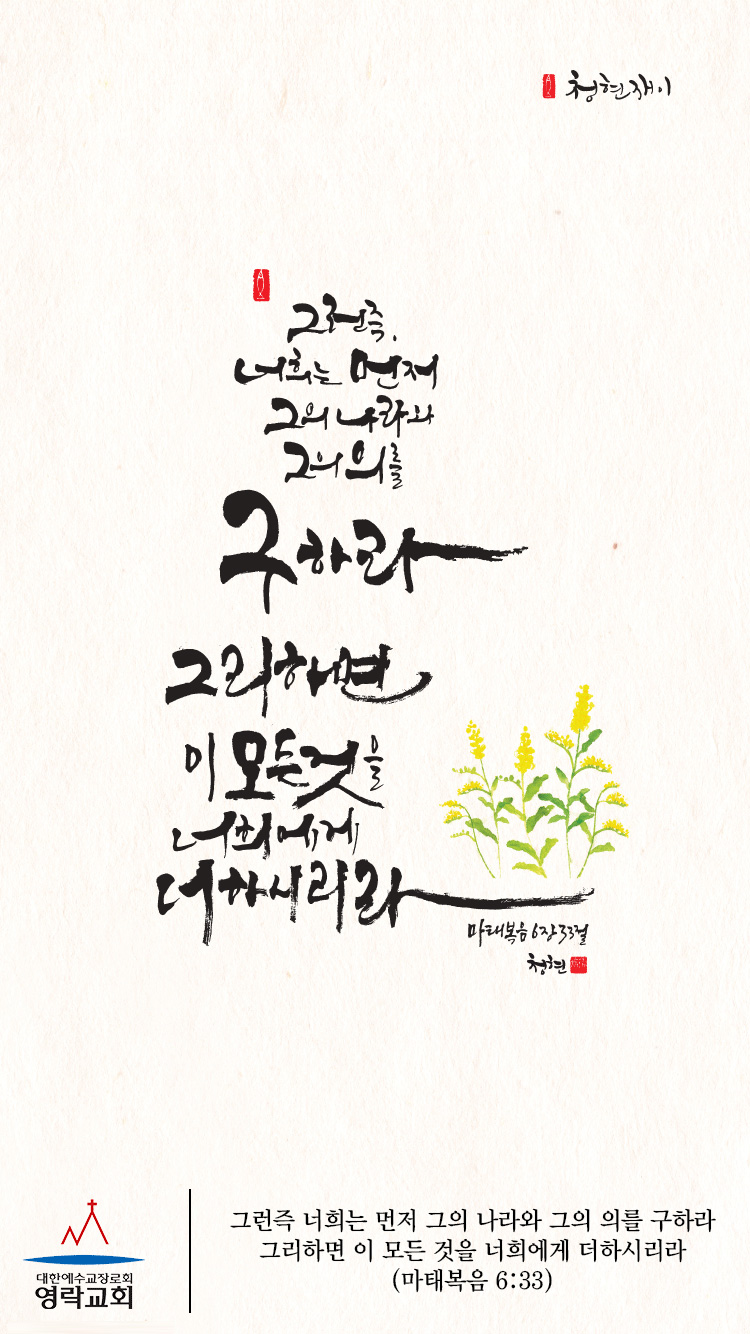 청현재이
그런즉,
너희는 먼저
그의 나라와
그의 의를
구하라
그리하면
이 모든것을
너희에게
더하시리라
마태복음 6장 33절
청현
대한예수교장로회
영락교회
그런즉 너희는 먼저 그의 나라와 그의 의를 구하라
그리하면 이 모든 것을 너희에게 더하시리라
(마태복음 6:33)